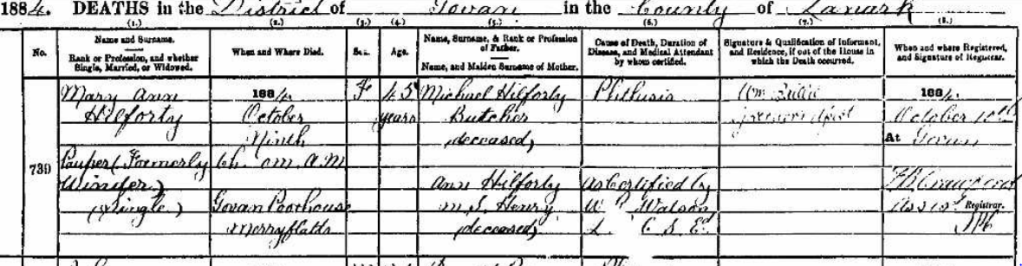 1884. DEATHS in the District of Govan in the County of Lanark
(1.) (2.) (3.) (4.) (5.) (6.) (7.) (8.)
No.
Name and Surname.
Rank or Profession, and whether
Single, Married, or Widowed.
When and Where Died.
Sex.
Age.
Name, Surname, & Rank or Profession
of Father.
Name, and Maiden Surname of Mother.
Cause of Death, Duration of
Disease, and Medical Attendant
by whom certified.
Signature & Qualification of Informant,
and Residence, if out of the House in
which the Death occurred.
When and where Registered,
and Signature of Registrar.
739
Mary Ann
Hilforty
Pauper (Formerly
Winder)
(Single)
1884
October
Ninth
6h. 0m. A.M.
Govan Poorhouse
Merryflatts
F
45
years
Michael Hilforty
Butcher
deceased,
Ann Hilforty
m.S. Henry
deceased,
Phthisis
As Certified by
W. Watson
Wm
1884
October 10th
At Govan
Crawford
Assist Registrar.